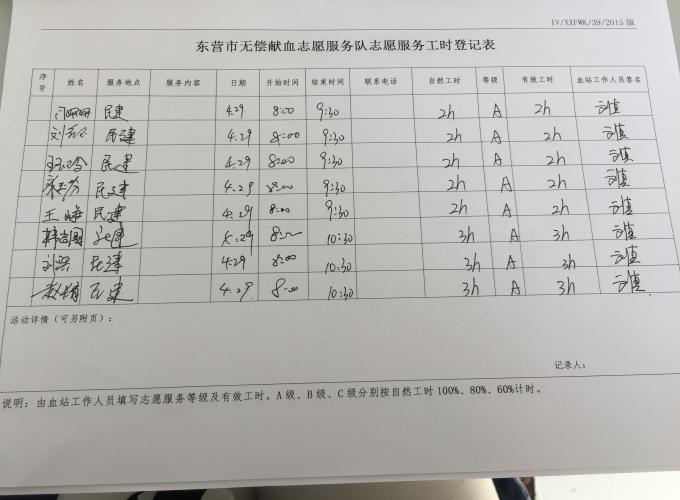 IV/XXFWK/39/2015 版
东营市无偿献血志愿服务队志愿服务工时登记表
序号 姓名 服务地点 服务内容 日期 开始时间 结束时间 联系电话 自然工时 等级 有效工时 血站工作人员签名
民建 4.29 8:00 9:30 2h A 2h
民建 4.29 8:00 9:30 2h A 2h
民建 4.29 8:00 9:30 2h A 2h
民建 4.29 8:00 9:30 2h A 2h
王 民建 4.29 8:00 9:30 2h A 2h
韩志国 民建 4.29 8:00 10:30 3h A 3h
刘 民建 4.29 8:00 10:30 3h A 3h
赵 民建 4.29 8:00 10:30 3h A 3h
活动详情（可另附页）：
记录人：
说明：由血站工作人员填写志愿服务等级及有效工时。A 级、B 级、C 级分别按自然工时 100%、80%、60%计时。